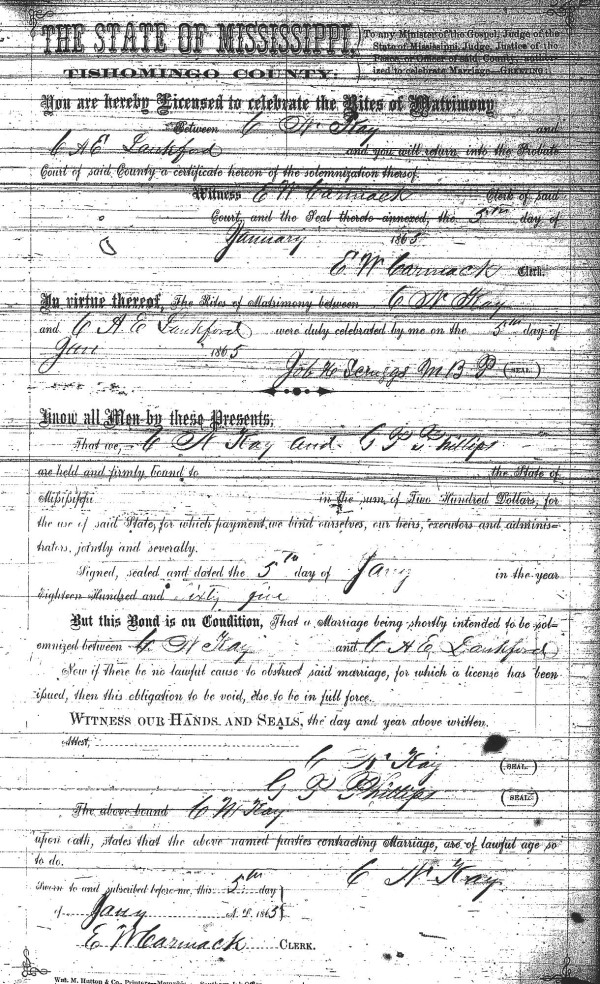 THE STATE OF MISSISSIPPI,
TISHOMINGO COUNTY.
To any Minister of the Gospel, Judge of the
State of Mississippi, Judge, Justice of the
Peace, or Officer of said County, author-
ized to celebrate Marriage—GREETING:
You are hereby Licensed to celebrate the Rites of Matrimony
Between C N Kay and
C A E Lankford and you will return into the Probate
Court of said County a certificate hereon of the solemnization thereof.
Witness E W Carmack Clerk of said
Court, and the Seal thereto annexed, the 5th day of
January 1865
E W Carmack Clerk.
In virtue thereof, The Rites of Matrimony between C N Kay
and C A E Lankford were duly celebrated by me on the 5th day of
Jan 1865
Scruggs M B P (SEAL.)
Know all Men by these Presents,
That we, C N Kay and G P Phillips
are held and firmly bound to the State of
Mississippi in the sum of Two Hundred Dollars, for
the use of said State, for which payment, we bind ourselves, our heirs, executors and adminis-
trators, jointly and severally.
Signed, sealed and dated the 5th day of Jany in the year
Eighteen Hundred and sixty five
But this Bond is on Condition, That a Marriage being shortly intended to be sol-
emnized between C. N Kay and C A E Lankford
Now if there be no lawful cause to obstruct said marriage, for which a license has been
issued, then this obligation to be void, else to be in full force.
WITNESS OUR HANDS AND SEALS, the day and year above written.
Attest,
C N Kay (SEAL.)
G P Phillips (SEAL.)
The above bound C N Kay
upon oath, states that the above named parties contracting Marriage, are of lawful age so
to do.
C N Kay
Sworn to and subscribed before me, this 5th day
of Jany A. D. 1865
E W Carmack CLERK.
Wm. M. Hutton & Co., Printers—Memphis